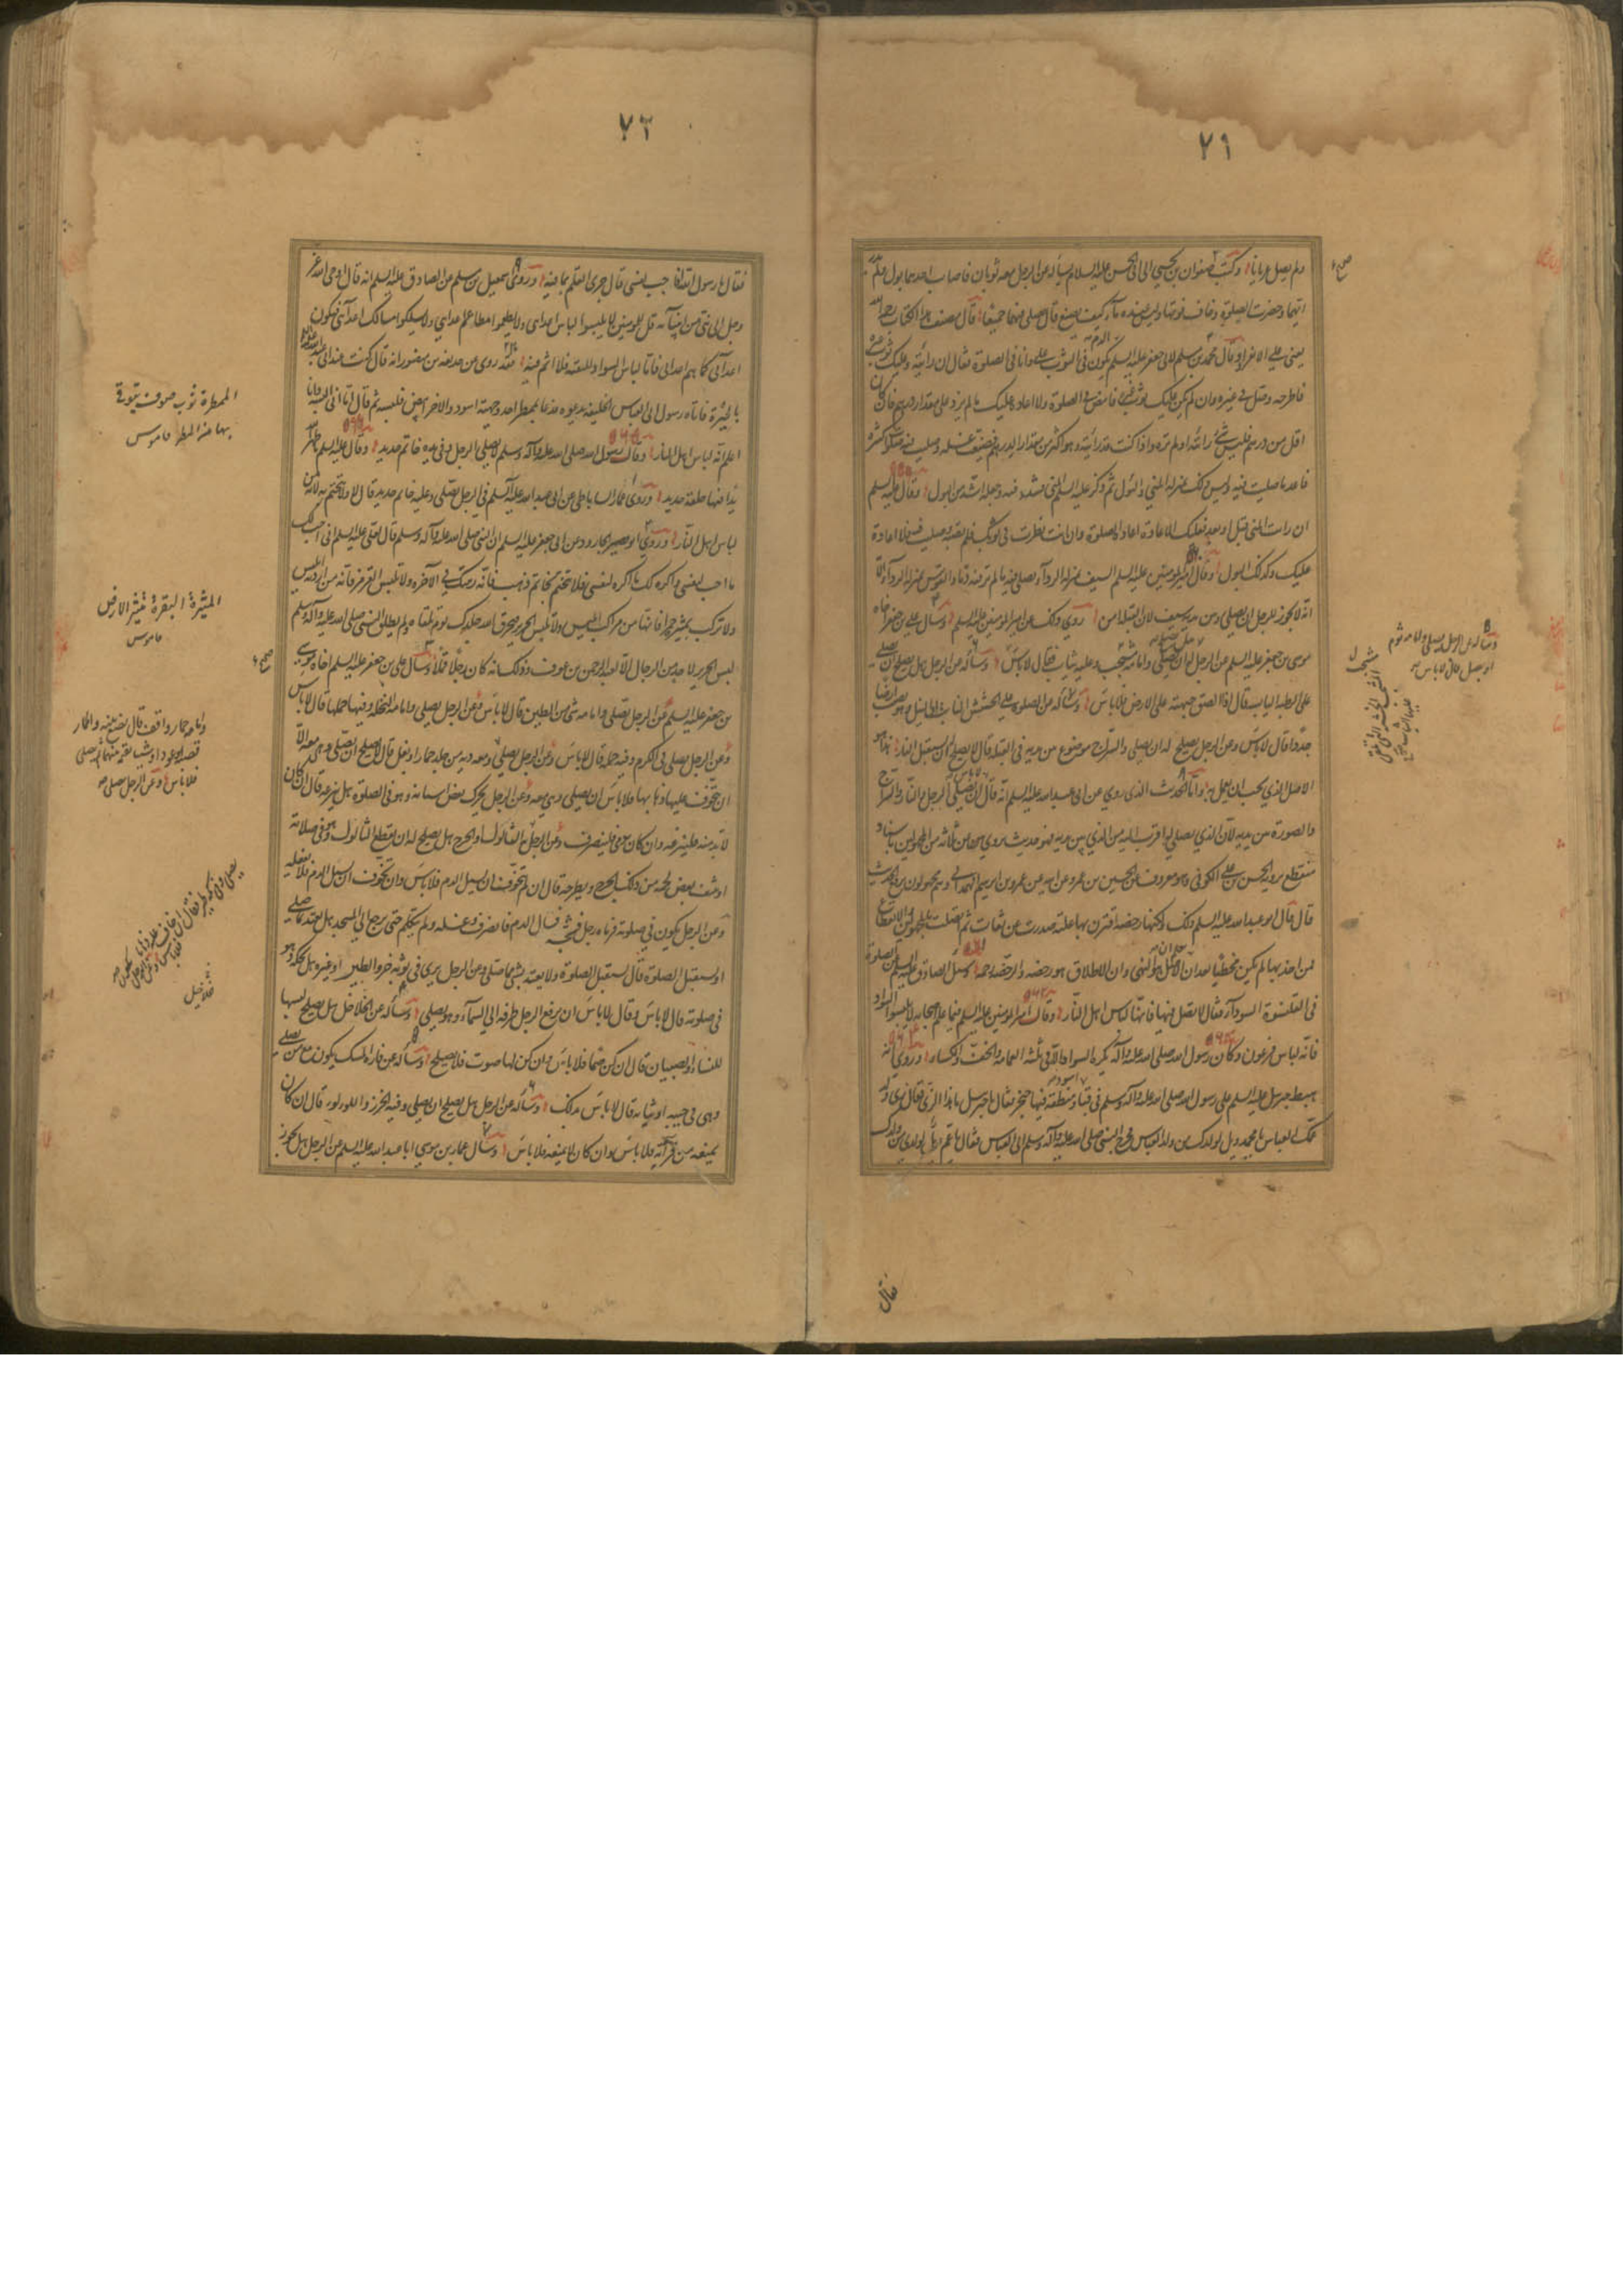 ٧١
ولم يصل عريانا وكتب صفوان بن يحيى الى ابى الحسن عليه السلام يسأله عن الرجل معه ثوبان فاصاب احدهما بول ولم يدر
ايهما هو وحضرت الصلوة وخاف فوتها وليس عنده ماء كيف يصنع قال يصلى فيهما جميعا قال مصنف هذا الكتاب رحمه الله
يعنى على الانفراد وقال محمد بن مسلم لابى جعفر عليه السلم الدم يكون فى الثوب على وانا فى الصلوة فقال ان رايته وعليك ثوب غيره
فاطرحه وصل فى غيره وان لم يكن عليك ثوب غيره فامض فى الصلوة ولا اعادة عليك ما لم يزد على مقدار درهم فان كان
اقل من درهم فليس بشئ رأيته او لم تره واذا كنت قد رأيته وهو اكثر من مقدار الدرهم فضيعت غسله وصليت فيه صلوة كثيرة
فاعد ما صليت فيه وليس ذلك بمنزلة المنى والبول ثم ذكر عليه السلم المنى فشدد فيه وجعله اشد من البول وقال عليه السلم
ان رايت المنى قبل او بعد فعليك الاعادة اعادة الصلوة وان انت نظرت فى ثوبك فلم تصبه وصليت فيه فلا اعادة
عليك وكذلك البول وقال امير المؤمنين عليه السلم السيف بمنزلة الرداء تصلى فيه ما لم تر فيه دما والقوس بمنزلة الرداء الا
انه لا يجوز للرجل ان يصلى وبين يديه سيف لان القبلة امن روى ذلك عن امير المؤمنين عليه السلم وسال على بن جعفر اخاه
موسى بن جعفر عليه السلم عن الرجل هل يصلح له ان يصلى وامامه مشجب وعليه ثياب فقال لا باس وسأله عن الرجل هل يصلح ان يصلى
على الرطبة النابتة قال اذا الصق جبهته على الارض فلا باس وسأله عن الصلوة على الحشيش النابت
جددا قال لا باس وعن الرجل يصلح له ان يصلى والسراج موضوع بين يديه فى القبلة قال لا يصلح له ان يستقبل النار هذا هو
الاصل الذى يجب ان يعمل به واما الحديث الذى روى عن ابى عبد الله عليه السلم انه قال لا باس ان يصلى الرجل والنار والسراج
والصورة بين يديه لان الذى يصلى له اقرب اليه من الذى بين يديه فهو حديث يروى عن ثلاثة من المجهولين باسناد
منقطع يرويه الحسن بن على الكوفى وهو معروف عن الحسين بن عمرو عن ابيه عن عمرو بن ابرهيم الهمدانى وهم مجهولون يرفع الحديث
قال قال ابو عبد الله عليه السلم ذلك ولكنها رخصة اقترنت بها علة صدرت عن ثقات ثم اتصلت بالمجهولين والانقطاع
فمن اخذ بها لم يكن مخطئا بعد ان يعلم ان الاصل هو النهى وان الاطلاق هو رخصة والرخصة رحمة وسئل الصادق عليه السلم عن الصلوة
فى القلنسوة السوداء فقال لا تصل فيها فانها لباس اهل النار وقال امير المؤمنين عليه السلم فيما علم اصحابه لا تلبسوا السواد
فانه لباس فرعون وكان رسول الله صلى الله عليه وآله يكره السواد الا فى ثلثة العمامة والخف والكساء وروى انه
هبط جبرئيل عليه السلم على رسول الله صلى الله عليه وآله وسلم فى قباء اسود ومنطقة فيها خنجر فقال يا جبرئيل ما هذا الزى فقال زى ولد
عمك العباس يا محمد ويل لولدك من ولد العباس فخرج النبى صلى الله عليه وآله وسلم الى العباس فقال يا عم ويل لولدى من ولدك
وسأله عن الرجل يصلى وامامه ثوم
او بصل قال لا باس
فقال
٧٢
فقال يا رسول الله افاجب نفسى قال جرى القلم بما فيه وروى اسمعيل بن مسلم عن الصادق عليه السلم انه قال اوحى الله عز
وجل الى نبى من انبيائه قل للمؤمنين لا يلبسوا لباس اعدائى ولا يطعموا مطاعم اعدائى ولا يسلكوا مسالك اعدائى فيكونوا
اعدائى كما هم اعدائى فاما لباس السواد للتقية فلا اثم فيه فقد روى عن حذيفة بن منصور انه قال كنت عند ابى عبد الله عليه السلم
بالحيرة فاتاه رسول ابى العباس الخليفة يدعوه فدعا بممطر احد وجهيه اسود والاخر ابيض فلبسه ثم قال اما انى البسه وانا
اعلم انه لباس اهل النار وقال رسول الله صلى الله عليه وآله وسلم لا يصلى الرجل وفى يده خاتم حديد وقال عليه السلم ما طهر الله
يدا فيها حلقة حديد وروى عمار الساباطى عن ابى عبد الله عليه السلم فى الرجل يصلى وعليه خاتم حديد قال لا ولا يتختم به لانه من
لباس اهل النار وروى ابو الجارود عن ابى جعفر عليه السلم ان النبى صلى الله عليه وآله وسلم قال لعلى عليه السلم انى احب لك
ما احب لنفسى واكره لك ما اكره لنفسى فلا تتختم بخاتم ذهب فانه زينتك فى الآخرة ولا تلبس القرمز فانه من اردية ابليس
ولا تركب بميثرة حمراء فانها من مراكب ابليس ولا تلبس الحرير فيحرق الله جلدك يوم تلقاه ولم يطلق النبى صلى الله عليه وآله وسلم
لبس الحرير لاحد من الرجال الا لعبد الرحمن بن عوف وذلك انه كان رجلا قملا وسأل على بن جعفر عليه السلم اخاه موسى
بن جعفر عليه السلم عن الرجل يصلى وامامه شئ من الطير قال لا باس وعن الرجل يصلى وامامه النخلة وفيها حملها قال لا باس
وعن الرجل يصلى فى الكرم وفيه حمله قال لا باس وعن الرجل يصلى ومعه دبة من جلد حمار او بغل قال لا يصلح ان يصلى وهى معه الا
ان يتخوف عليها ذهابها فلا باس ان يصلى وهى معه وعن الرجل يحرك بعض اسنانه وهو فى الصلوة هل ينزعه قال ان كان
لا يدميه فلينزعه وان كان يدمى فلينصرف وعن الرجل به الثالول او الجرح هل يصلح له ان يقطع الثالول وهو فى صلاته
او ينتف بعض لحمه من ذلك الجرح ويطرحه قال ان لم يتخوف ان يسيل الدم فلا باس وان تخوف ان يسيل الدم فلا يفعله
وعن الرجل يكون فى صلوته فرماه رجل فشجه فسال الدم فانصرف وغسله ولم يتكلم حتى رجع الى المسجد هل يعتد بما صلى
او يستقبل الصلوة قال يستقبل الصلوة ولا يعتد بشئ مما صلى وعن الرجل يرى فى ثوبه خرؤ الطير او غيره هل يحكه وهو
فى صلوته قال لا باس وقال لا باس ان يرفع الرجل طرفه الى السماء وهو يصلى وسأله عن الخلاخل هل يصلح لبسها
للنساء والصبيان قال ان كن صما فلا باس وان كن لها صوت فلا يصلح وسأله عن فارة المسك يكون مع من يصلى
وهى فى جيبه او ثيابه قال لا باس بذلك وسأله عن الرجل هل يصلح ان يصلى وفى فيه الخرز واللؤلؤ قال ان كان
يمنعه من قرائته فلا باس وان كان لا يمنعه فلا باس وسال عمار بن موسى ابا عبد الله عليه السلم عن الرجل هل يجوز
الممطرة ثوب صوف يتوقى
بها من المطر قاموس
الميثرة البقرة تثير الارض
قاموس
وامامه حمار واقف قال يضع بينه والحمار
قصبة او عودا او شيئا يقيمه بينهما ثم يصلى
فلا باس وعن الرجل صلى
خلاخيل